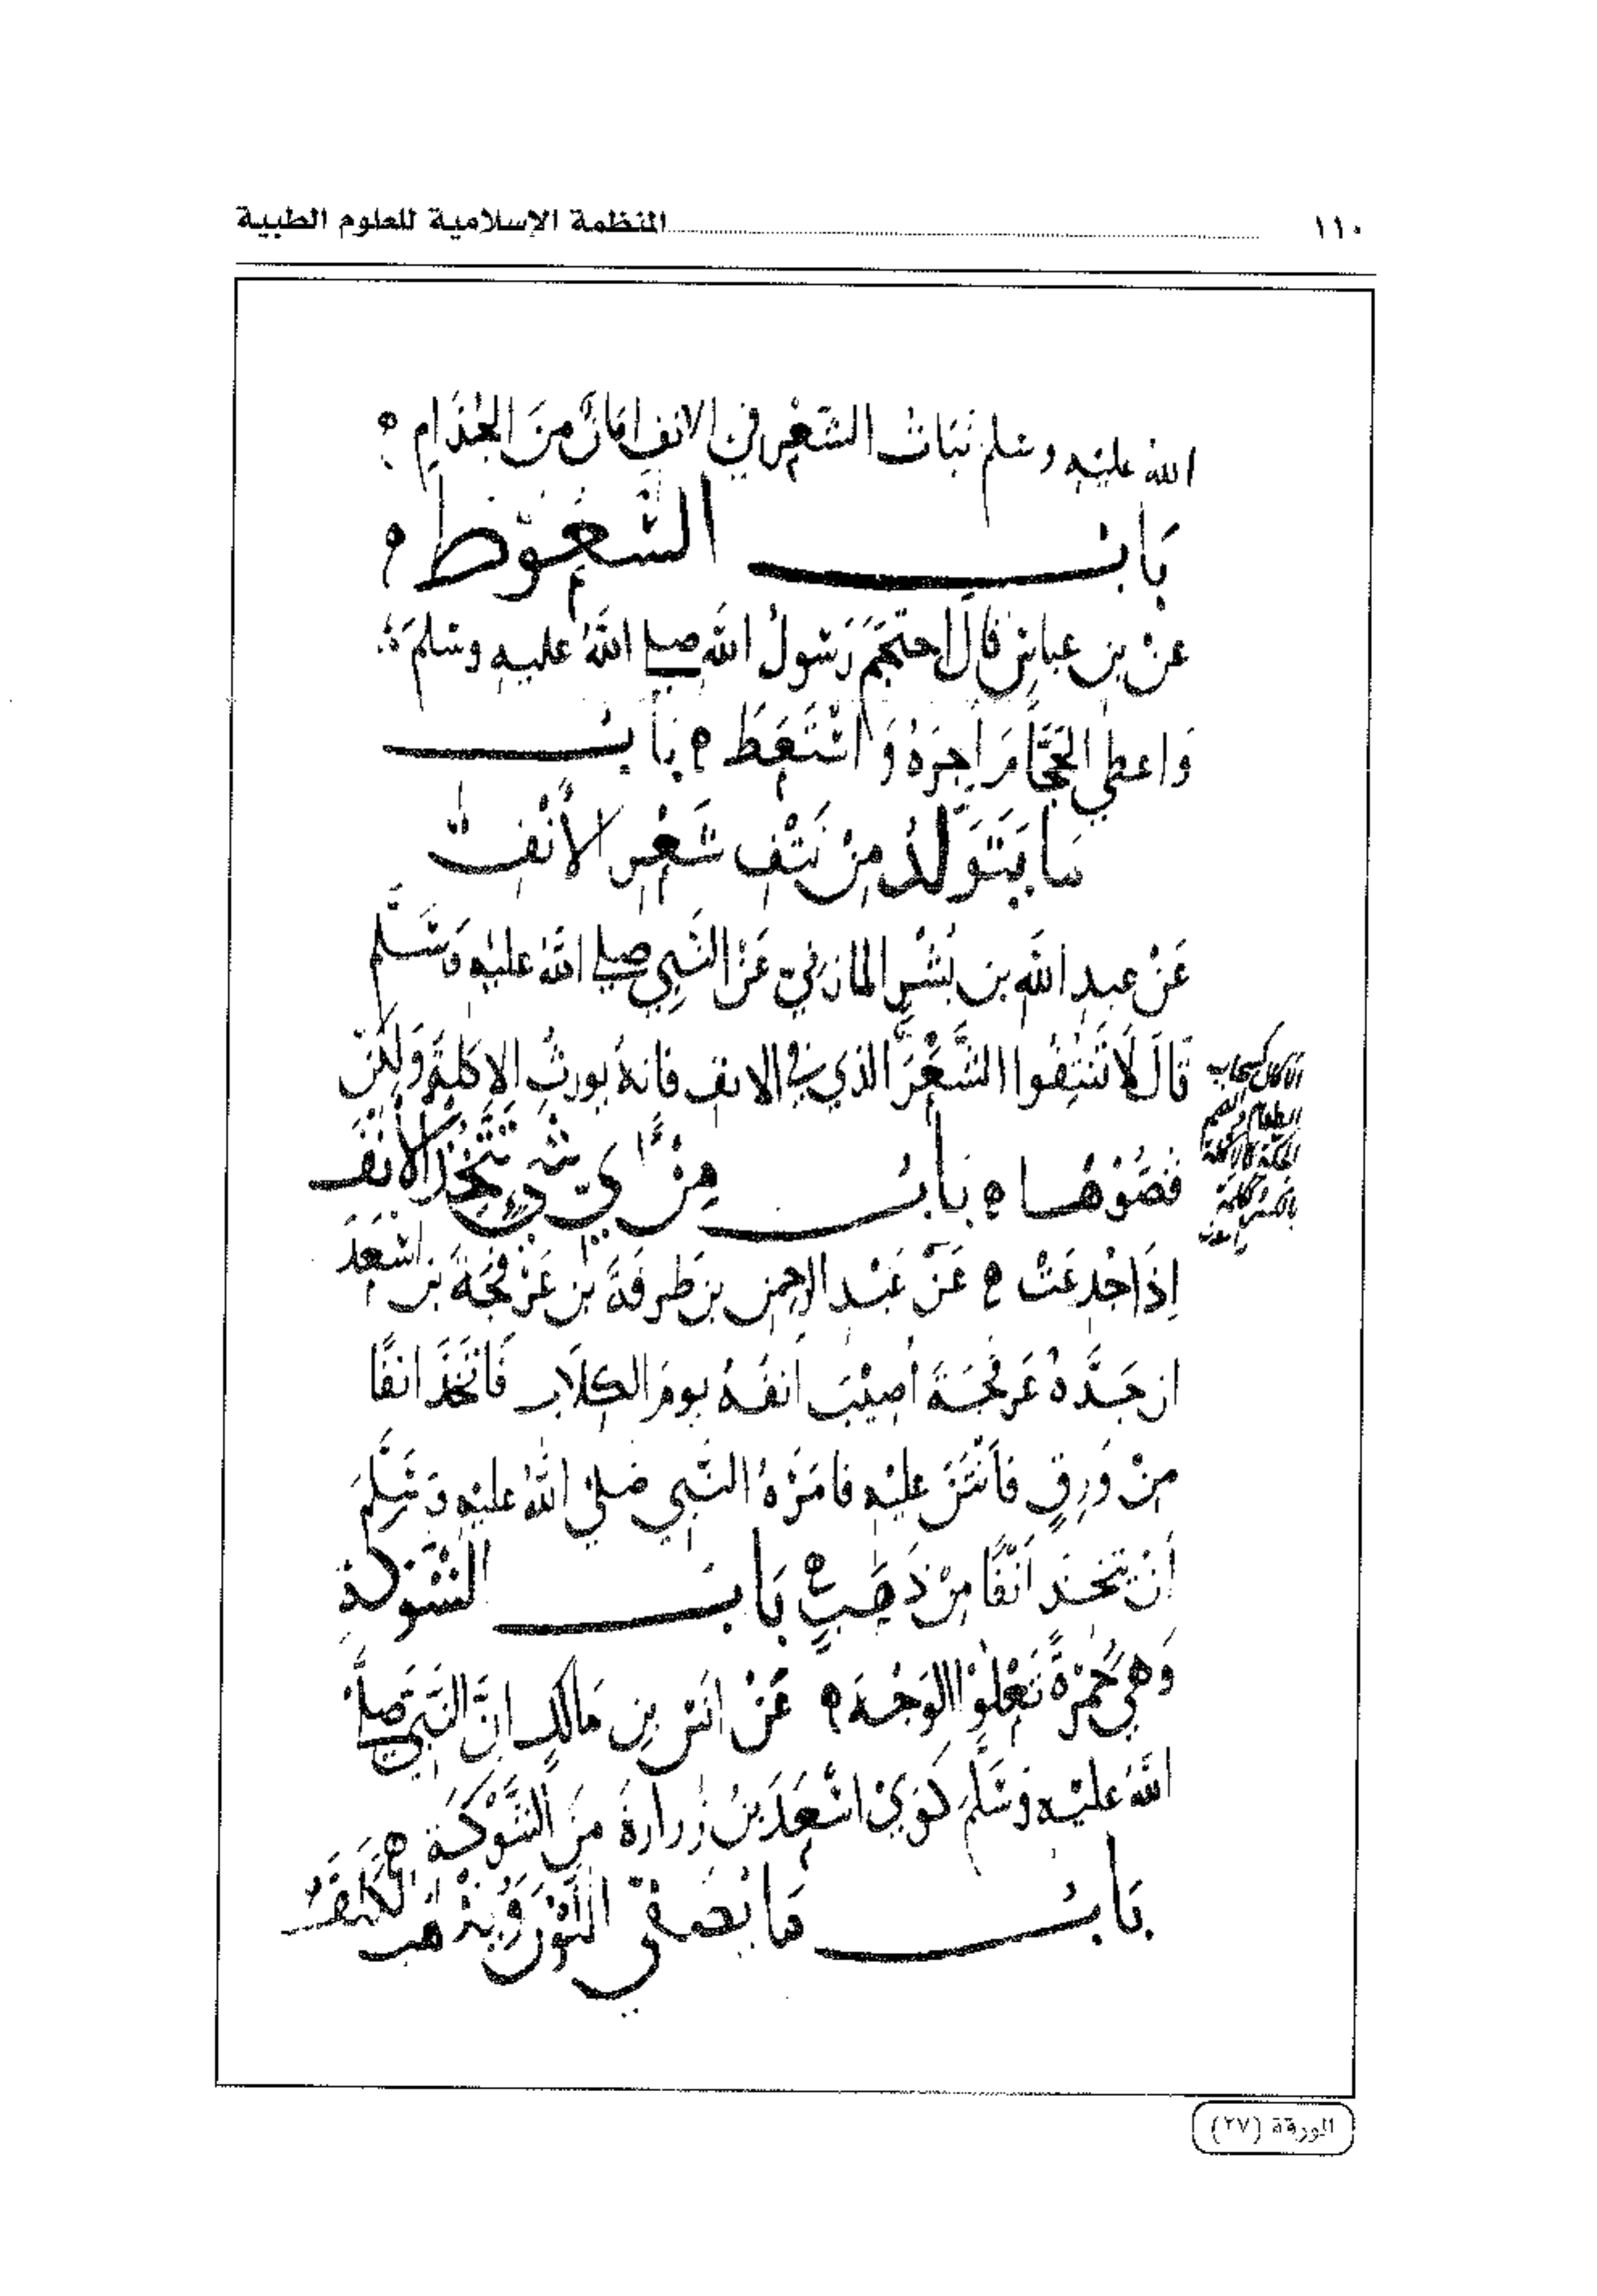 ١١٠ المنظمة الإسلامية للعلوم الطبية
الله عليه وسلم نبات الشعر في الانف امان من الجذام
باب السعوط
عن بن عباس قال احتجم رسول الله صلى الله عليه وسلم
واعطى الحجام اجره واستعط باب
ما يتولد من نتف شعر الأنف
عن عبد الله بن بشر المازني عن النبي صلى الله عليه وسلم
قال لا تنتفوا الشعر الذي في الانف فانه يورث الاكلة ولكن
قصوها باب من أي شيء تتخذ الأنف
إذا جدعت عن عبد الرحمن بن طرفة بن عرفجة بن اسعد
ان جده عرفجة أصيب أنفه يوم الكلاب فاتخذ انفا
من ورق فأنتن عليه فامره النبي صلى الله عليه وسلم
أن يتخذ أنفا من ذهب باب الشوكة
وهي حمرة تعلوا الوجه عن انس بن مالك ان النبي صلى
الله عليه وسلم كوى اسعد بن زرارة من الشوكة
باب ما يصفي اللون ويذهب
الورقة (٢٧)